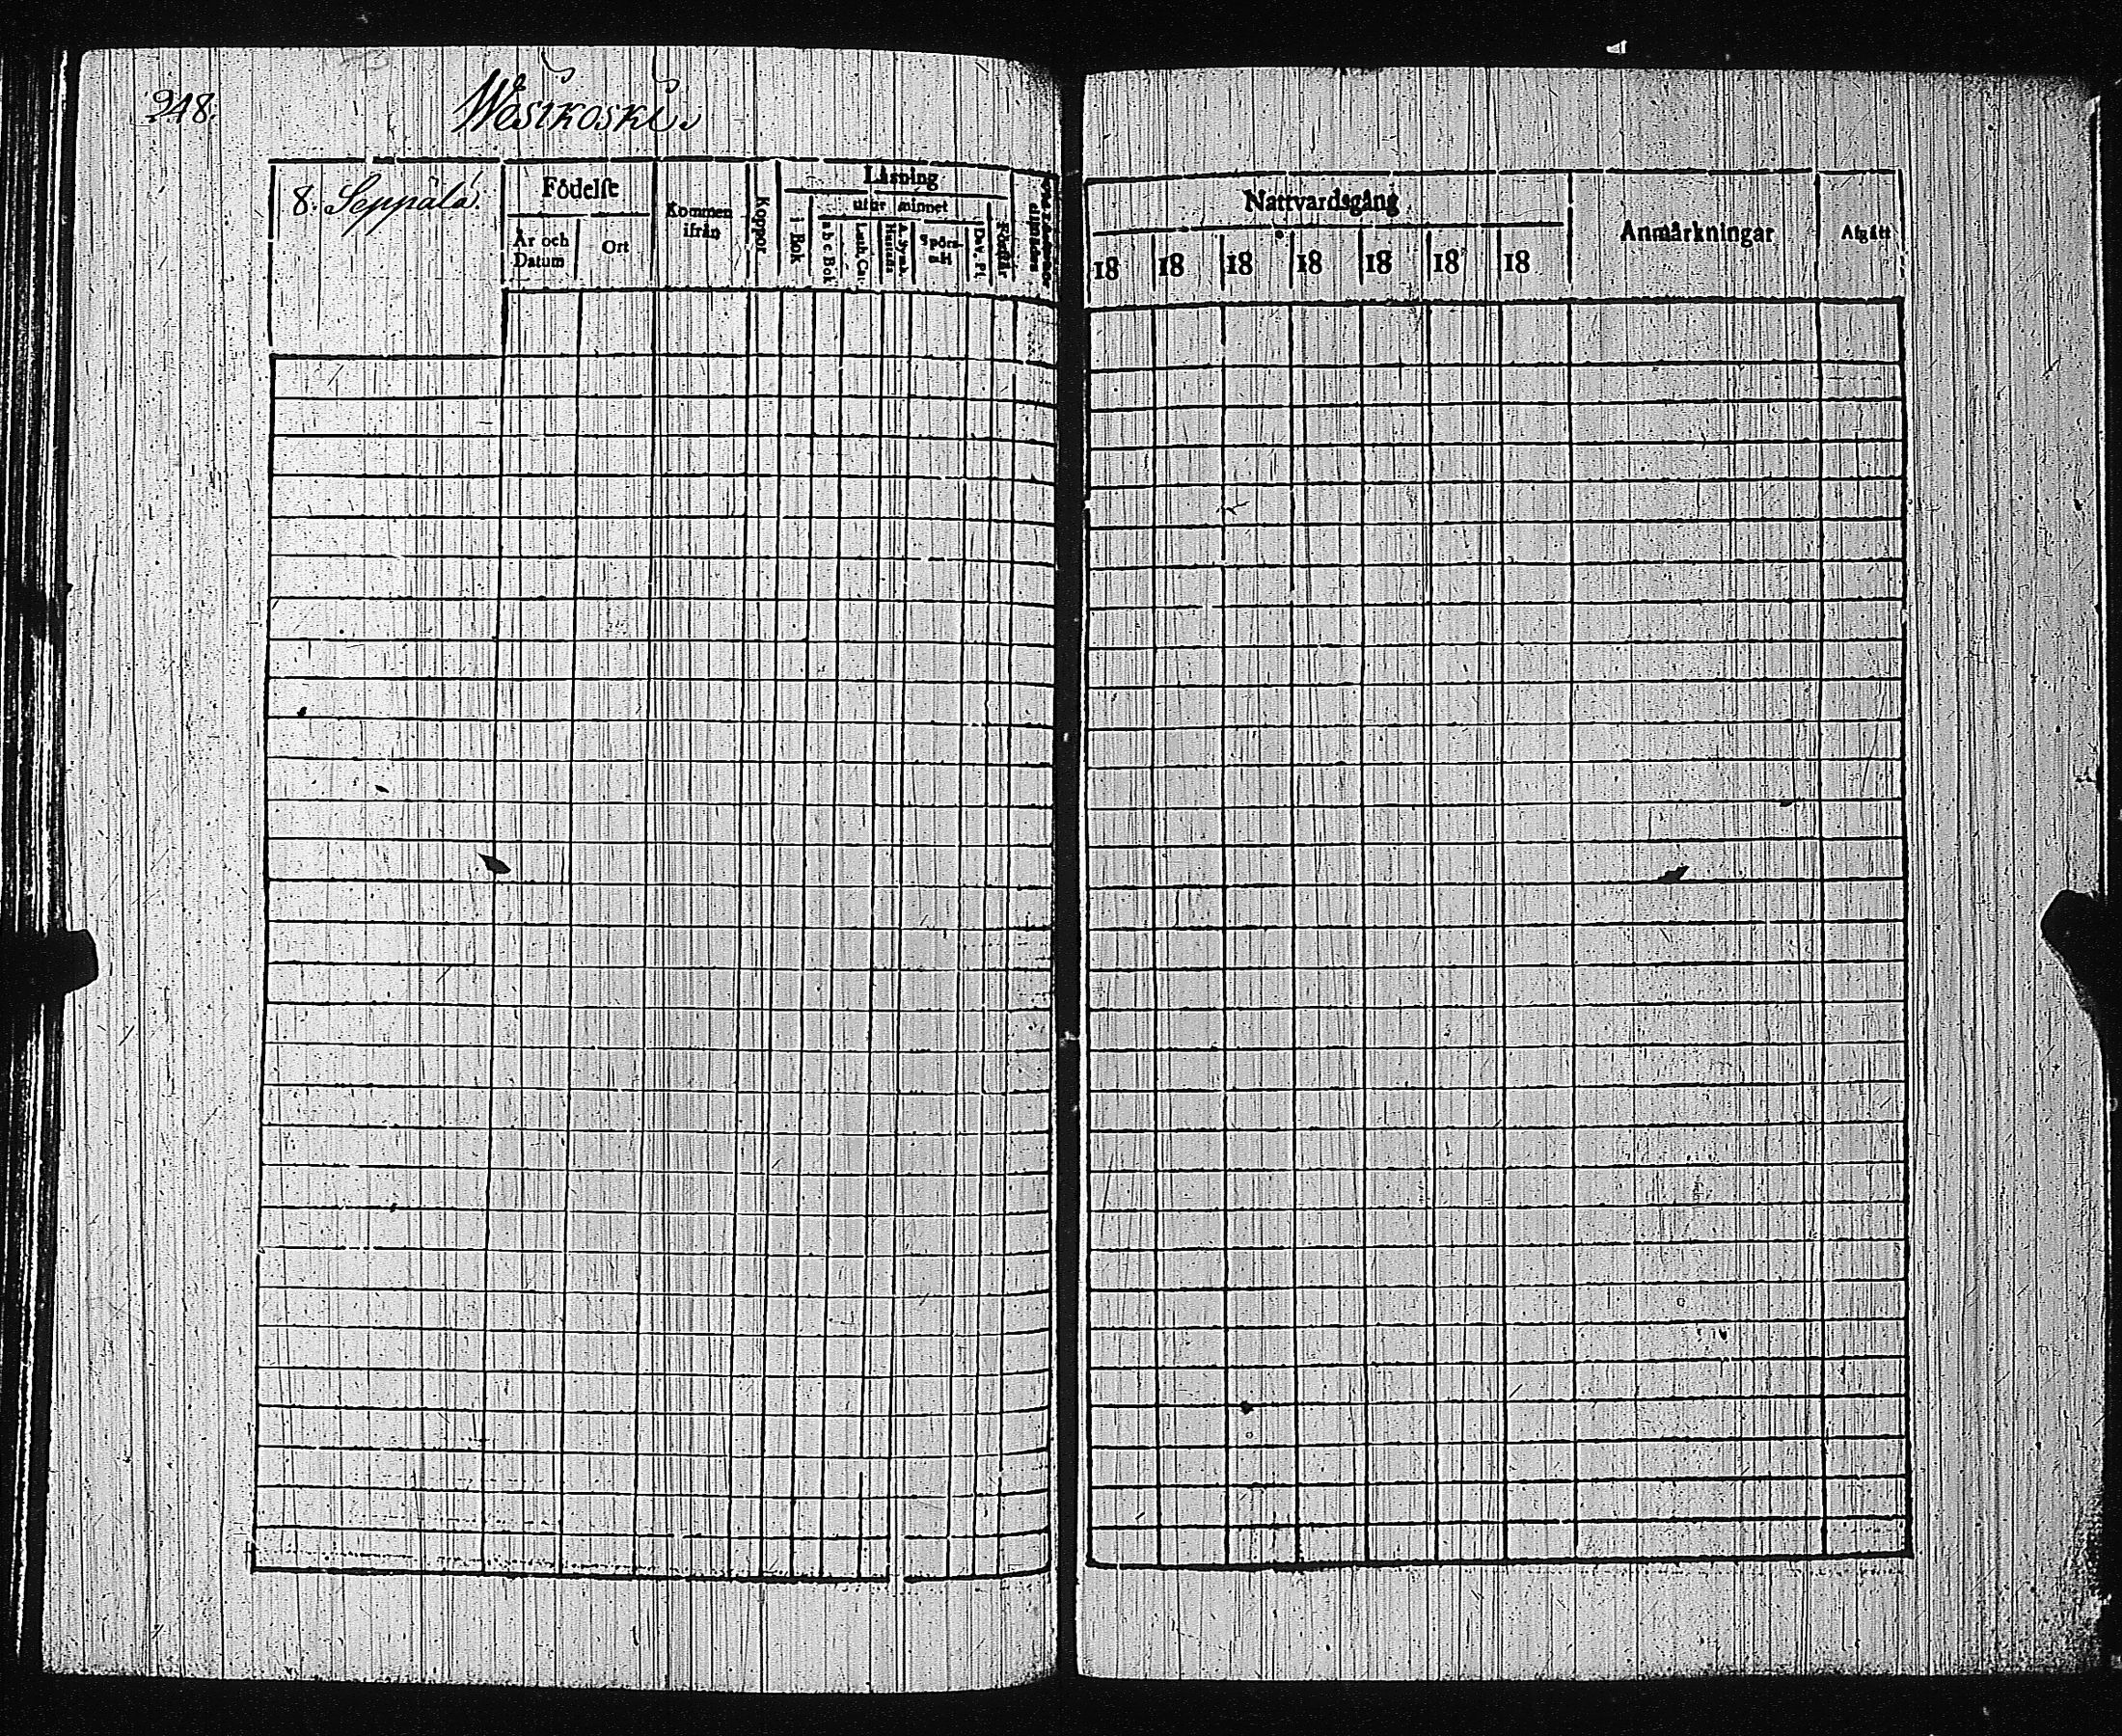 248.
Westkoski.
8. Seppälä.
Födelse
År och Datum
Ort
Kommen ifrån
Koppor
Läsning
i Bok
utur minnet
a b c Bok
Luth. Cat.
A. Symb.
Hustafla
Spörs-mål
Dav. Ps.
Förstår
Nattvardsgång
18 18 18 18 18 18 18
Anmärkningar
Afgått